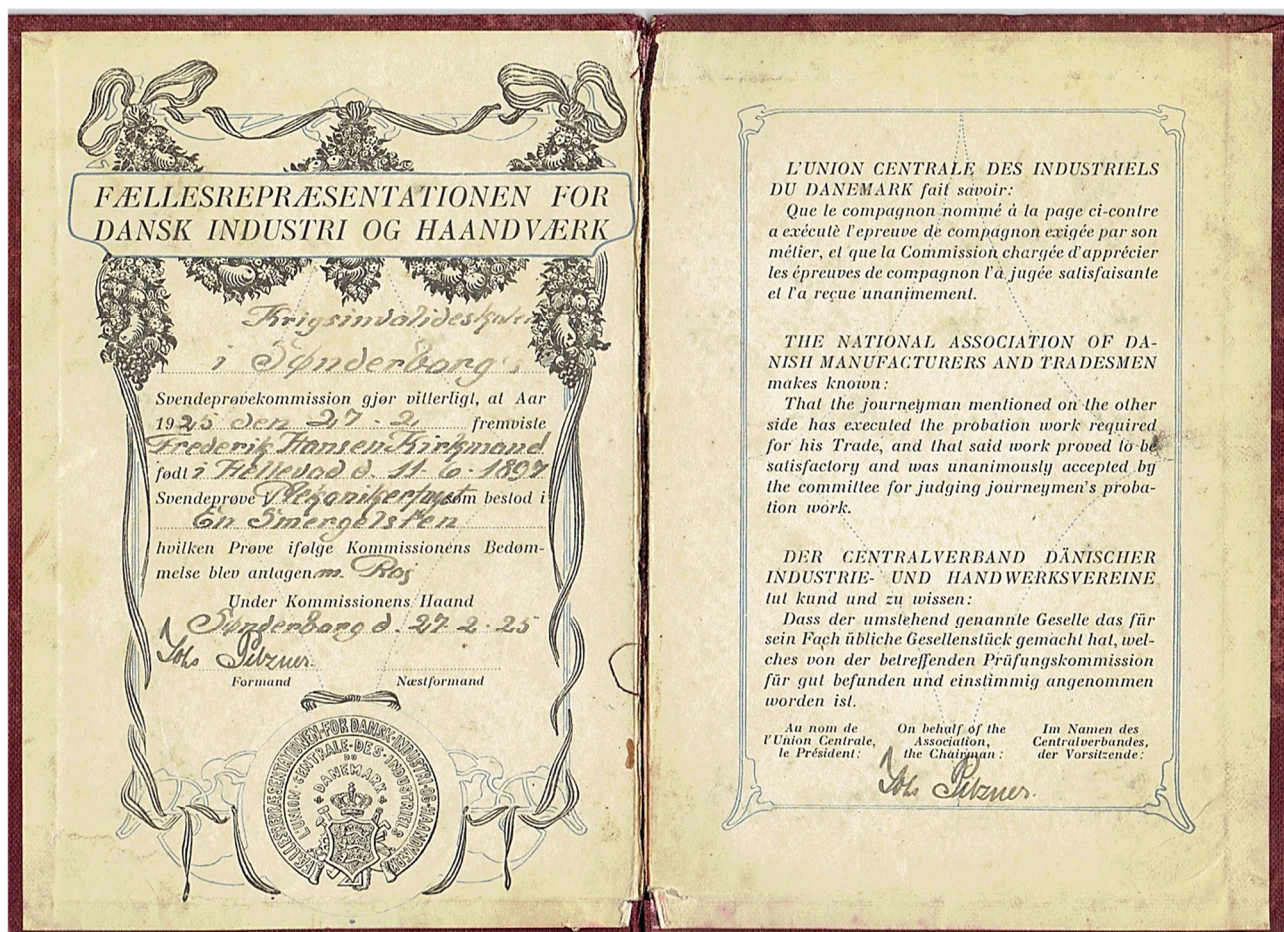 FÆLLESREPRÆSENTATIONEN FOR
DANSK INDUSTRI OG HAANDVÆRK
Krigsinvalideskolen
i Sønderborg.
Svendeprøvekommission gjør vitterligt, at Aar
1925 den 27-2. fremviste
Frederik Hansen Kirkmand
født i Hellevad d. 11-6-1897
Svendeprøve i Mekanikerfaget som bestod i
En Smergelsten
hvilken Prøve ifølge Kommissionens Bedøm-
melse blev antagen m. Ros
Under Kommissionens Haand
Sønderborg d. 27-2-25
Johs Petzner.
Formand Næstformand
FÆLLESREPRÆSENTATIONEN·FOR·DANSK·INDUSTRI·OG·HAANDVÆRK
L'UNION·CENTRALE·DES·INDUSTRIELS
DU
DANEMARK
L'UNION CENTRALE DES INDUSTRIELS
DU DANEMARK fait savoir:
Que le compagnon nommé à la page ci-contre
a exécutè l'epreuve de compagnon exigée par son
métier, et que la Commission chargée d'apprécier
les épreuves de compagnon l'à jugée satisfaisante
et l'a reçue unanimement.
THE NATIONAL ASSOCIATION OF DA-
NISH MANUFACTURERS AND TRADESMEN
makes known:
That the journeyman mentioned on the other
side has executed the probation work required
for his Trade, and that said work proved to be
satisfactory and was unanimously accepted by
the committee for judging journeymen's proba-
tion work.
DER CENTRALVERBAND DÄNISCHER
INDUSTRIE- UND HANDWERKSVEREINE
tut kund und zu wissen:
Dass der umstehend genannte Geselle das für
sein Fach übliche Gesellenstück gemacht hat, wel-
ches von der betreffenden Prüfungskommission
für gut befunden und einstimmig angenommen
worden ist.
Au nom de l'Union Centrale, le Président:
On behalf of the Association, the Chairman:
Im Namen des Centralverbandes, der Vorsitzende:
Johs Petzner.